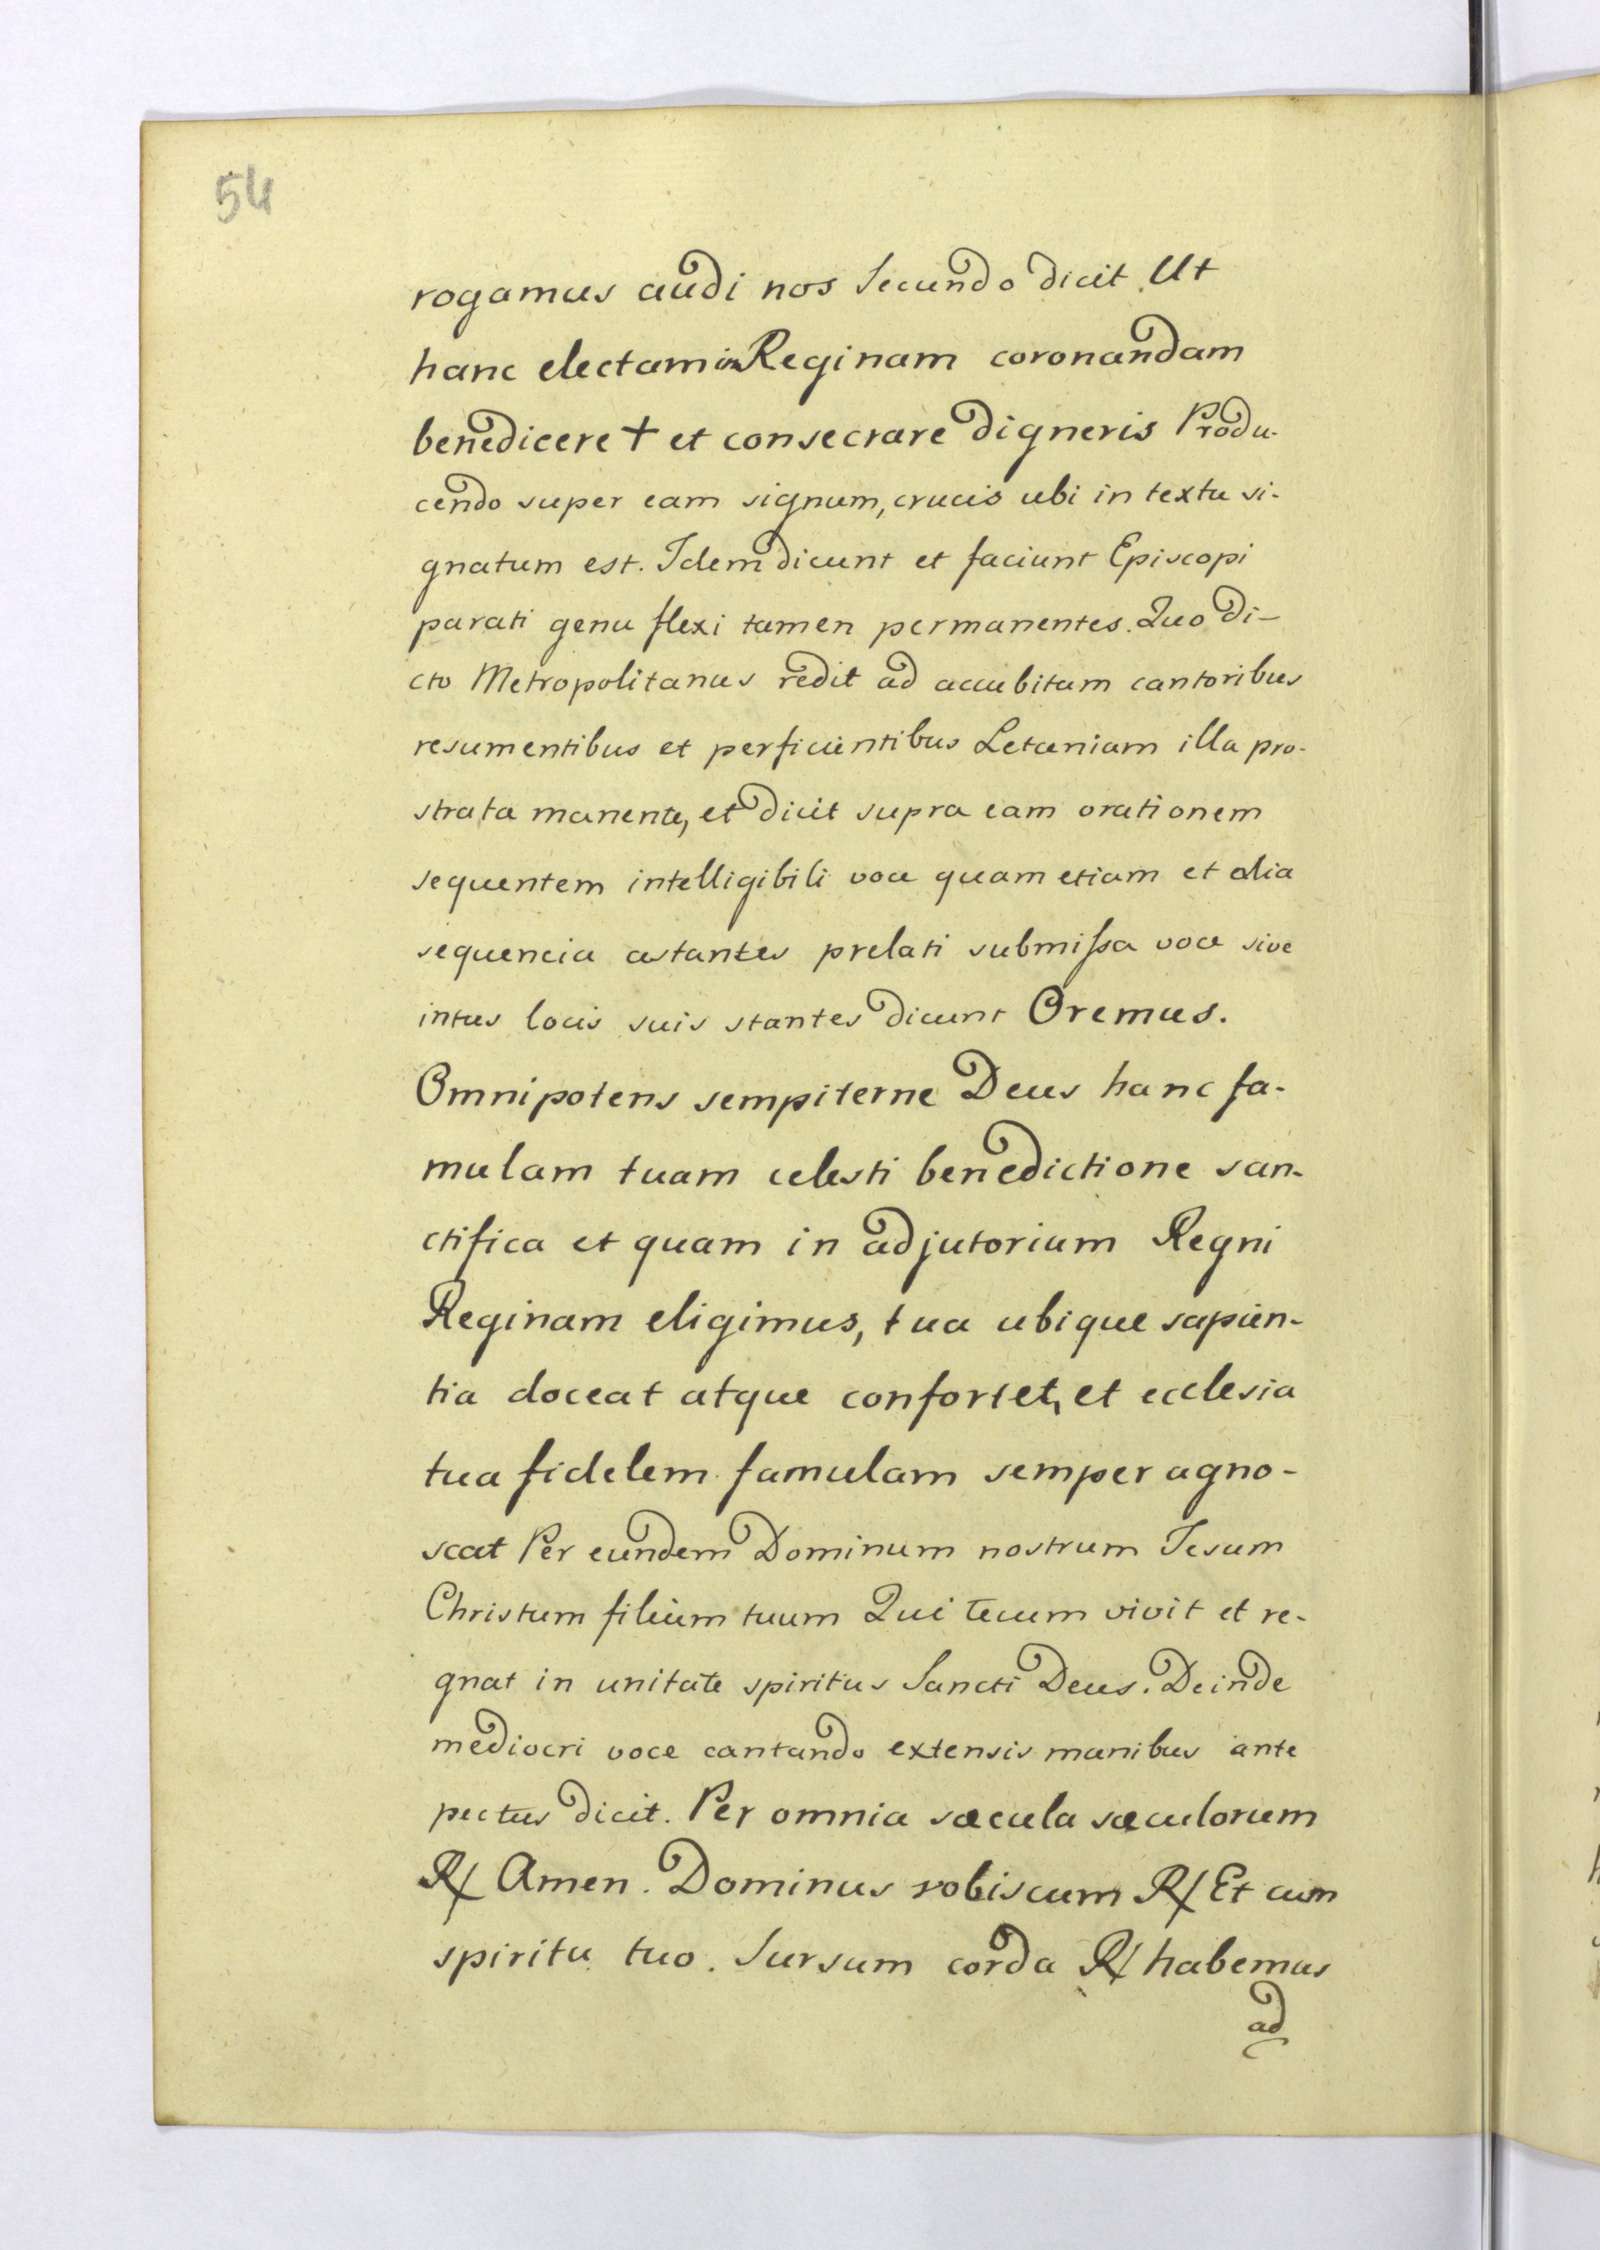 54
rogamus audi nos Secundo dicit Ut
hanc electam in Reginam coronandam
benedicere † et consecrare digneris Produ-
cendo super eam signum, crucis ubi in textu si-
gnatum est. Idem dicunt et faciunt Episcopi
parati genu flexi tamen permanentes. Quo di-
cto Metropolitanus redit ad accubitum cantoribus
resumentibus et perficientibus Letaniam illa pro-
strata manente, et dicit supra eam orationem
sequentem intelligibili voce quam etiam et alia
sequencia astantes prelati submissa voce sive
intus locis suis stantes dicunt Oremus.
Omnipotens sempiterne Deus hanc fa-
mulam tuam celesti benedictione san-
ctifica et quam in adjutorium Regni
Reginam eligimus, tua ubique sapien-
tia doceat atque confortet, et ecclesia
tua fidelem famulam semper agno-
scat Per eundem Dominum nostrum Jesum
Christum filium tuum Qui tecum vivit et re-
gnat in unitate spiritus Sancti Deus. Deinde
mediocri voce cantando extensis manibus ante
pectus dicit. Per omnia sæcula sæculorum
℟ Amen. Dominus vobiscum ℟ Et cum
spiritu tuo. Sursum corda ℟ habemus
ad